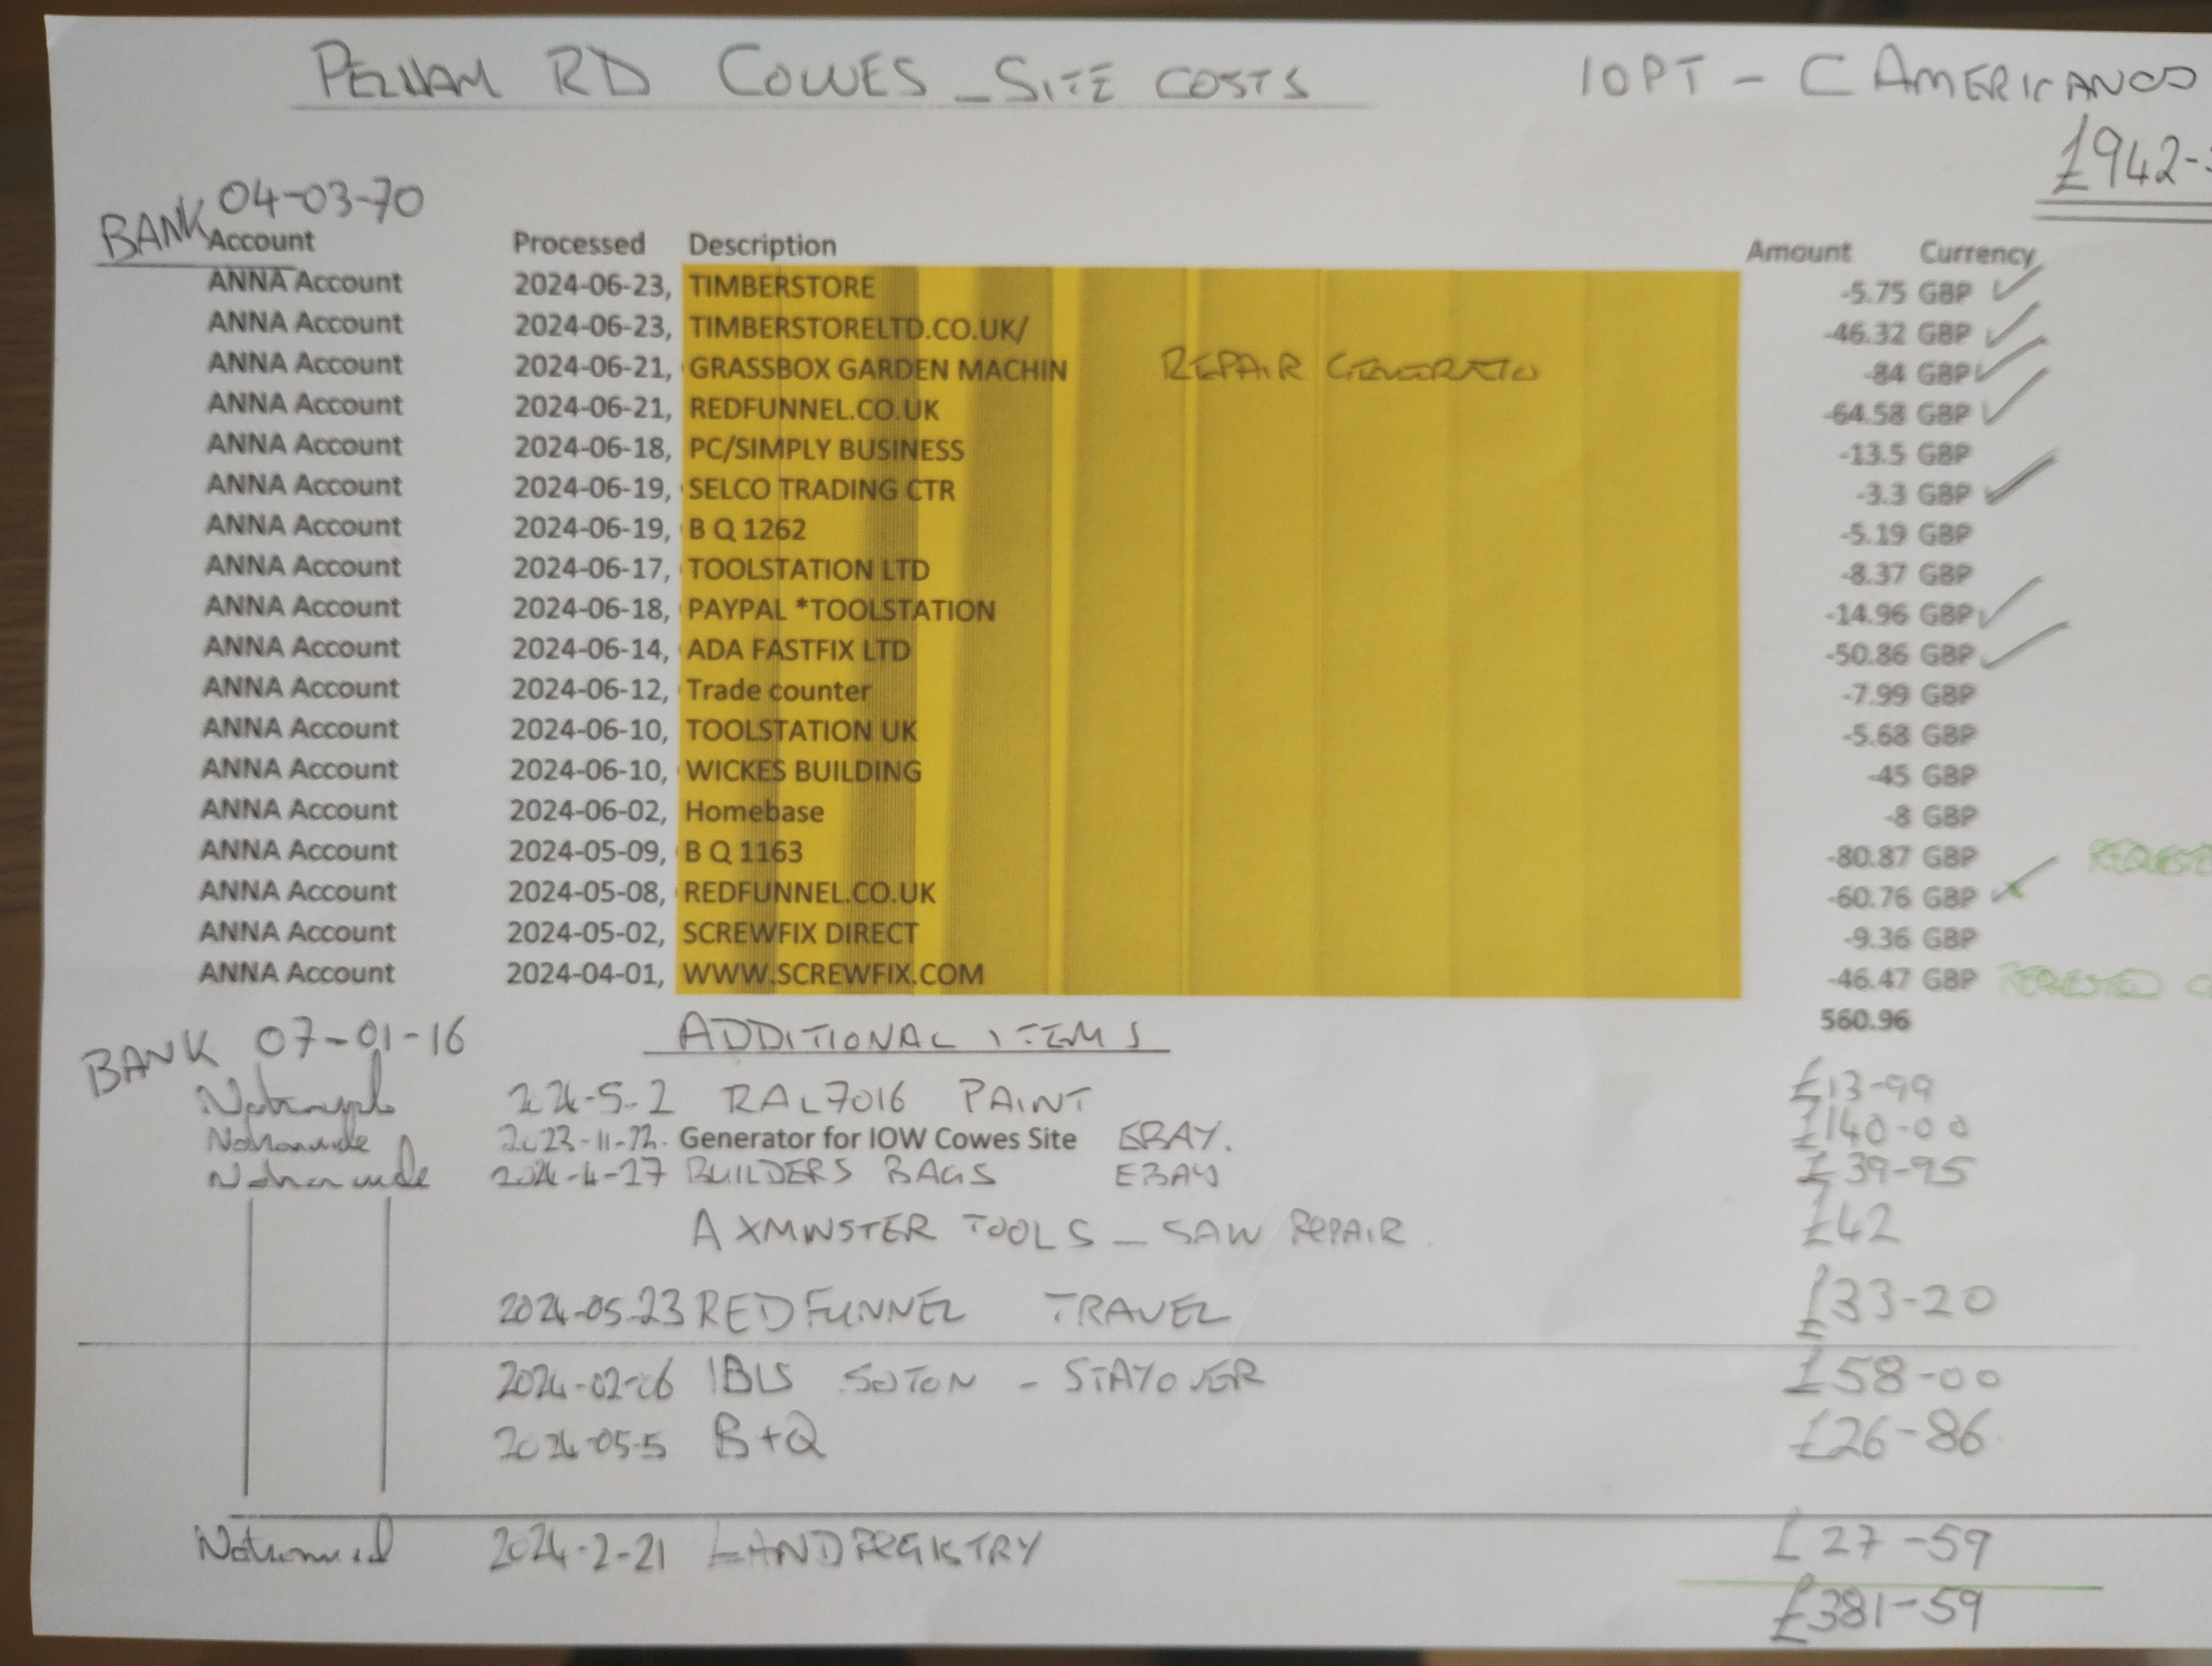 PELHAM RD COWES - SITE COSTS 10PT - C AMERICANOS
£942-
BANK 04-03-70
Account Processed Description Amount Currency
ANNA Account 2024-06-23, TIMBERSTORE -5.75 GBP ✓
ANNA Account 2024-06-23, TIMBERSTORELTD.CO.UK/ -46.32 GBP ✓
ANNA Account 2024-06-21, GRASSBOX GARDEN MACHIN REPAIR -84 GBP ✓
ANNA Account 2024-06-21, REDFUNNEL.CO.UK -64.58 GBP ✓
ANNA Account 2024-06-18, PC/SIMPLY BUSINESS -13.5 GBP
ANNA Account 2024-06-19, SELCO TRADING CTR -3.3 GBP ✓
ANNA Account 2024-06-19, B Q 1262 -5.19 GBP
ANNA Account 2024-06-17, TOOLSTATION LTD -8.37 GBP
ANNA Account 2024-06-18, PAYPAL *TOOLSTATION -14.96 GBP ✓
ANNA Account 2024-06-14, ADA FASTFIX LTD -50.86 GBP ✓
ANNA Account 2024-06-12, Trade counter -7.99 GBP
ANNA Account 2024-06-10, TOOLSTATION UK -5.68 GBP
ANNA Account 2024-06-10, WICKES BUILDING -45 GBP
ANNA Account 2024-06-02, Homebase -8 GBP
ANNA Account 2024-05-09, B Q 1163 -80.87 GBP REQUESTE
ANNA Account 2024-05-08, REDFUNNEL.CO.UK -60.76 GBP ✓
ANNA Account 2024-05-02, SCREWFIX DIRECT -9.36 GBP
ANNA Account 2024-04-01, WWW.SCREWFIX.COM -46.47 GBP REQUESTED
560.96
BANK 07-01-16 ADDITIONAL ITEMS
Nationwide 2024-5-2 RAL7016 PAINT £13-99
Nationwide Generator for IOW Cowes Site EBAY. £140-00
Nationwide 2024-4-27 BUILDERS BAGS EBAY £39-95
AXMINSTER TOOLS - SAW REPAIR £42
2024-05-23 REDFUNNEL TRAVEL £33-20
2024-02-06 IBIS SOTON - STAYOVER £58-00
2024-05-5 B+Q £26-86
2024-2-21 LANDREGISTRY £27-59
£381-59